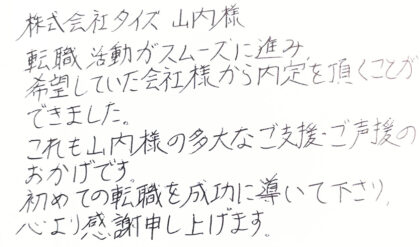 株式会社タイズ 山内様
転職活動がスムーズに進み
希望していた会社様から内定を頂くことが
できました。
これも山内様の多大なご支援・ご声援の
おかげです。
初めての転職を成功に導いて下さり、
心より感謝申し上げます。